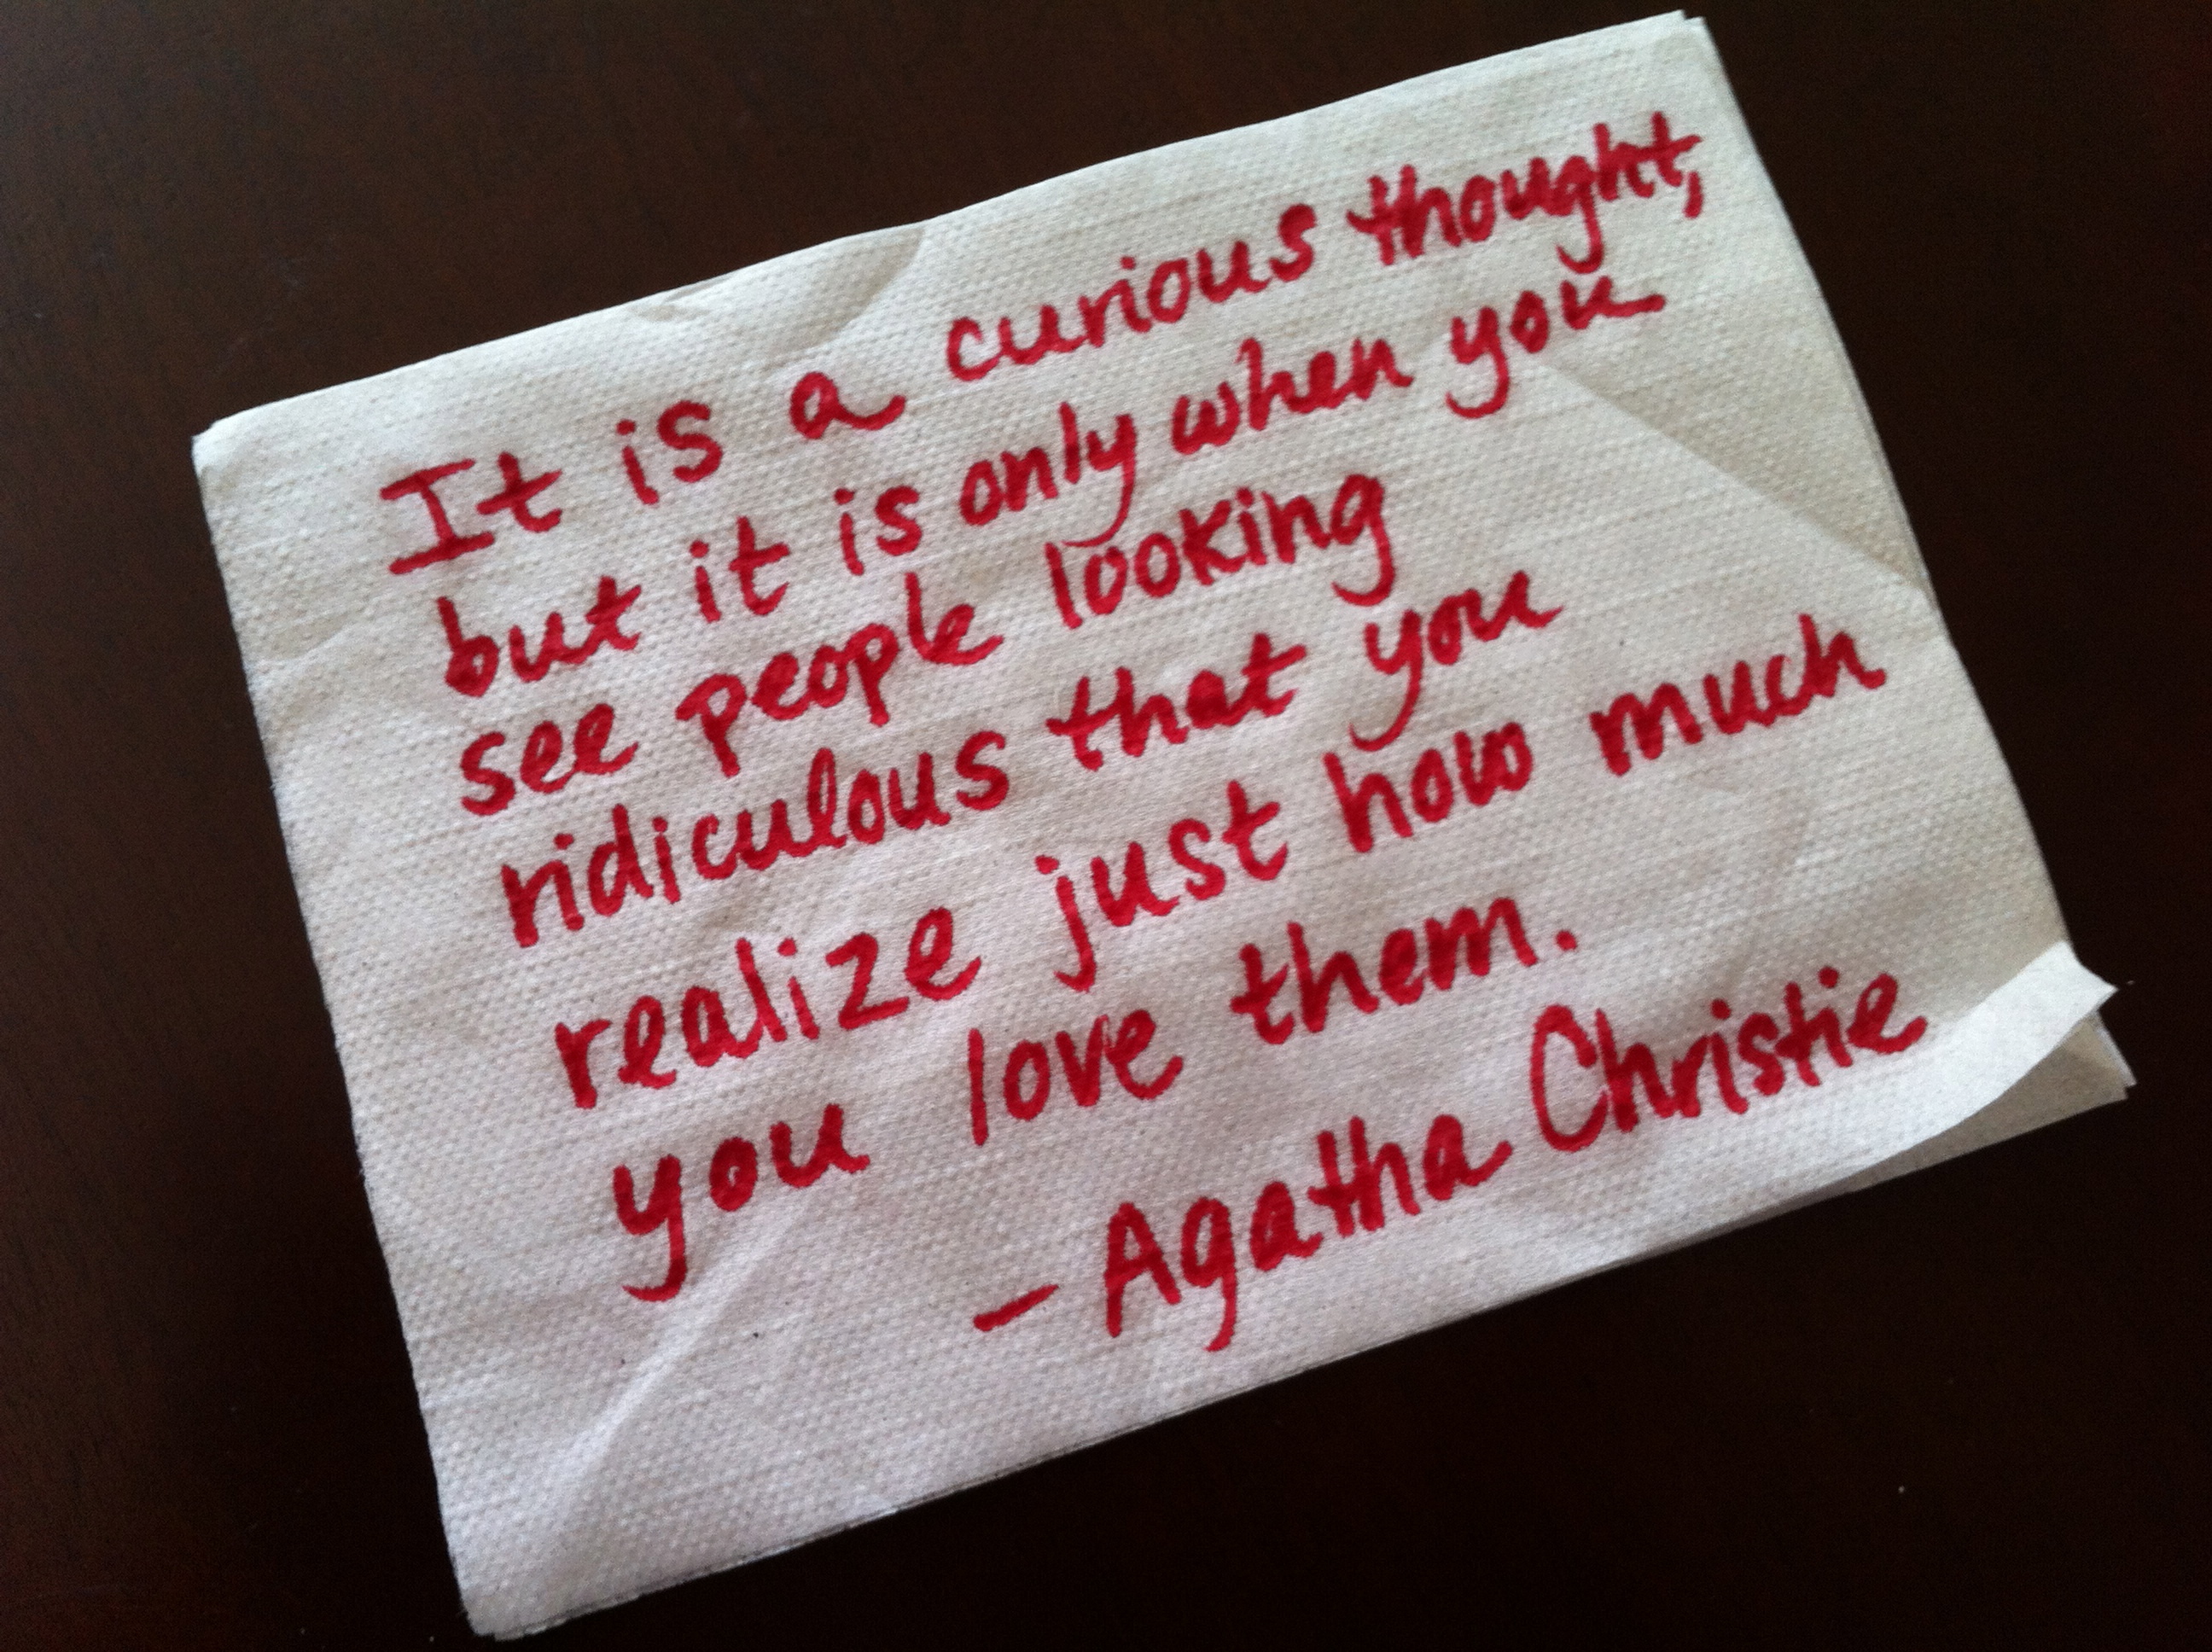 It is a curious thought,
but it is only when you
see people looking
ridiculous that you
realize just how much
you love them.
- Agatha Christie